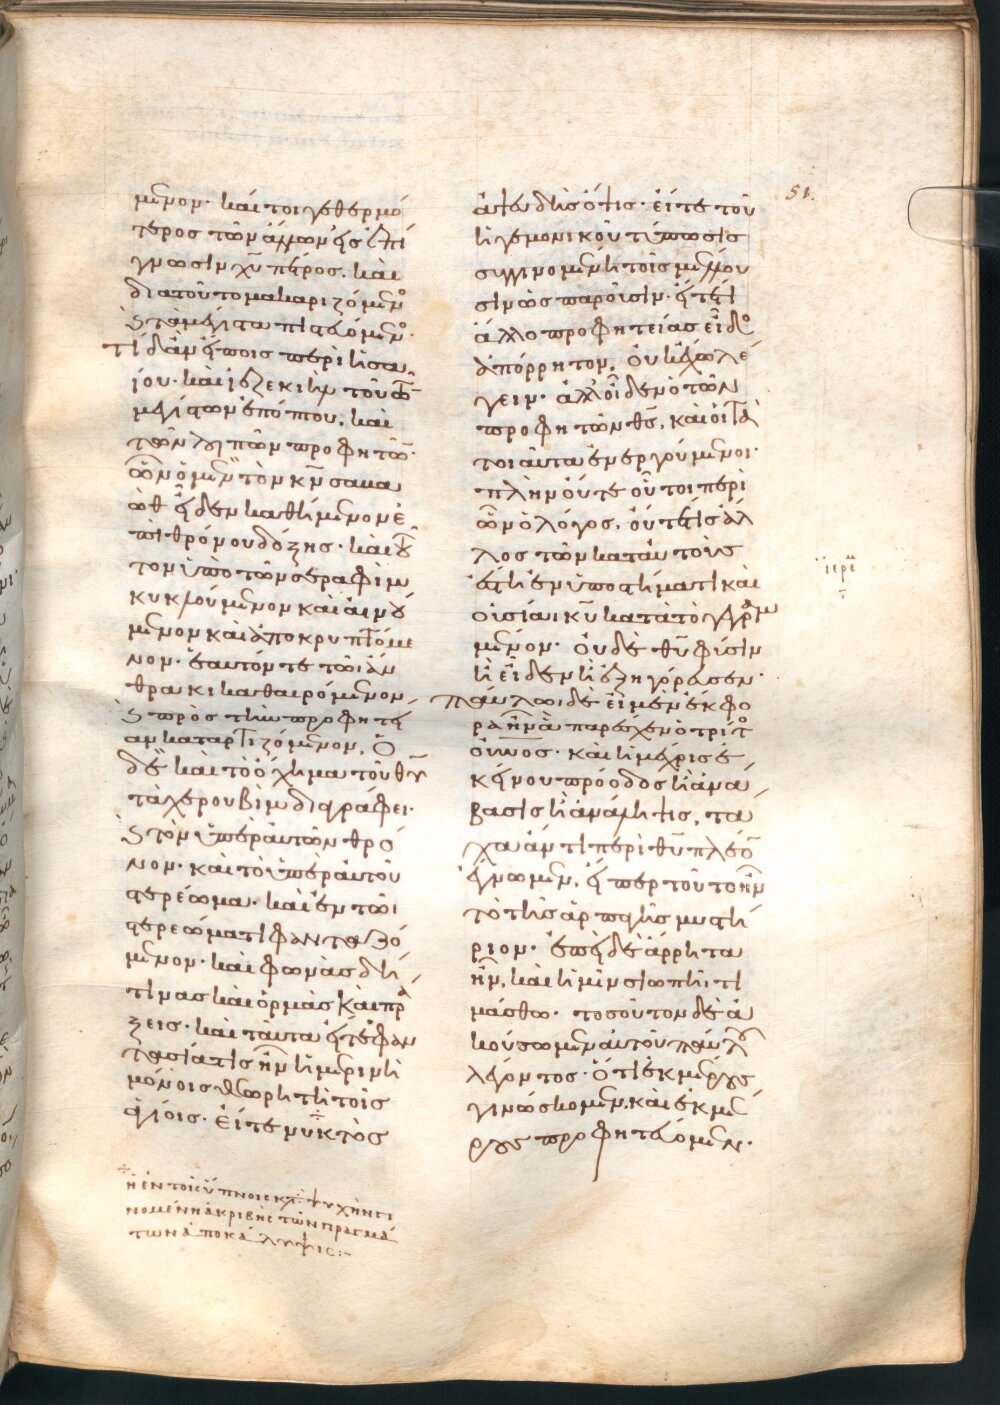 μενον· καί τοι γε θερμό
τερος τῶν ἄλλων εἰς ἐπί
γνωσιν χυ πέτρος. καὶ
διατοῦτο μακαριζόμενος
καὶ τὰ μέγιστα πιστευόμενος·
τί δ' ἂν εἴποις περὶ ἡσα
ΐου· καὶ ἰεζεκιὴλ τοῦ τῶν
μεγίστων ἐπόπτου. καὶ
τῶν λοιπῶν προφητῶν·
ὧν ὁ μὲν τὸν κν σαβα
ὼθ εἶδεν καθήμενον ἐ
πὶ θρόνου δόξης· καὶ τοῦ
τον ὑπὸ τῶν σεραφὶμ
κυκλούμενον καὶ αἰνού
μενον καὶ ἀποκρυπτόμε
νον· ἑαυτόν τε τῶι ἄν
θρακι καθαιρόμενον,
καὶ πρὸς τὴν προφητεί
αν καταρτιζόμενον. ὁ
δὲ καὶ τὸ ὄχημα τοῦ θυ
τὰ χερουβὶμ διαγράφει·
καὶ τὸν ὑπὲρ αὐτῶν θρό
νον· καὶ τὸ ὑπὲρ αὐτοῦ
στερέωμα· καὶ ἐν τῶι
στερεώματι φανταζό
μενον· καὶ φωνὰς δή
τινας καὶ ὁρμὰς καὶ πρά
ξεις· καὶ ταῦτα εἴτε φαν
τασία τις ἦν ἡμερινὴ
μόνοις θεωρητὴ τοῖς
ἁγίοις· εἴτε νυκτὸς
ἀψευδὴς ὄψις· εἴτε τοῦ
ἡγεμονικοῦ τύπωσις
συγγινομένη τοῖς μέλλου
σιν ὡς παροῦσιν· εἴτε τι
ἄλλο προφητείας εἶδος
ἀπόρρητον, οὐκ ἔχω λέ
γειν· ἀλλ' οἶδεν ὁ τῶν
προφητῶν θς, καὶ οἱ τὰ
τοιαῦτα ἐνεργούμενοι·
πλὴν οὔτε οὗτοι περὶ
ὧν ὁ λόγος, οὔτε τις ἄλ
λος τῶν κατ' αὐτοὺς
ἔστη ἐν ὑποστήματι καὶ
οὐσίαι κυ κατὰ τὸ γεγραμ
μένον· οὐδὲ θυ φύσιν
ἢ εἶδεν ἢ ἐξηγόρευσεν·
παύλωι δὲ εἰ μὲν ἔκφο
ρα ἦν ἃ παρέσχεν ὁ τρίτος
οὐνος· καὶ ἡ μέχρις ἐ
κείνου πρόοδος ἢ ἀνά
βασις ἢ ἀνάληψις, τά
χα ἄν τι περὶ θυ πλέον
ἔγνωμεν, εἴπερ τοῦτο ἦν
τὸ τῆς ἁρπαγῆς μυστή
ριον· ἐπεὶ δὲ ἄρρητα
ἦν, καὶ ἡμῖν σιωπῇ τι
μάσθω· τοσοῦτον δὲ ἀ
κούσωμεν αὐτοῦ παύλου
λέγοντος· ὅτι ἐκ μέρους
γινώσκομεν. καὶ ἐκ μέ
ρους προφητεύομεν.
51.
ἱερεμ
ἡ ἐν τοῖς ὕπνοις
νομένη ἀκριβὴς τῶν πραγμά
των ἀποκάλυψις:~